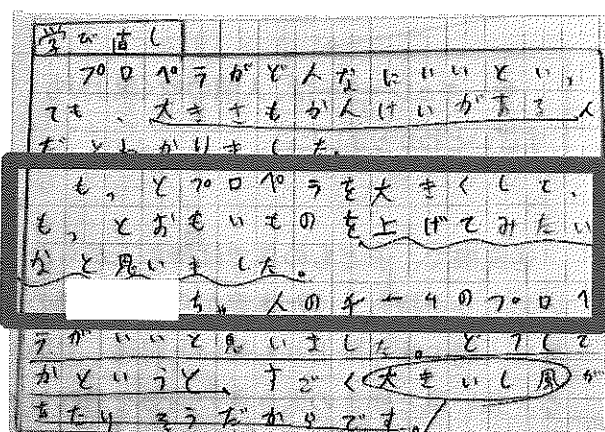 学び直し
プロペラがどんなにいいとい、
ても、大きさもかんけいがある人
だとわかりました。
も、とプロペラを大きくして、
も、とおもいものを上げてみたい
なと思いました。
ちゃんのチームのプロペ
ラがいいと思いました。どうして
かというと、すごく大きいし風が
きたりそうだからです。